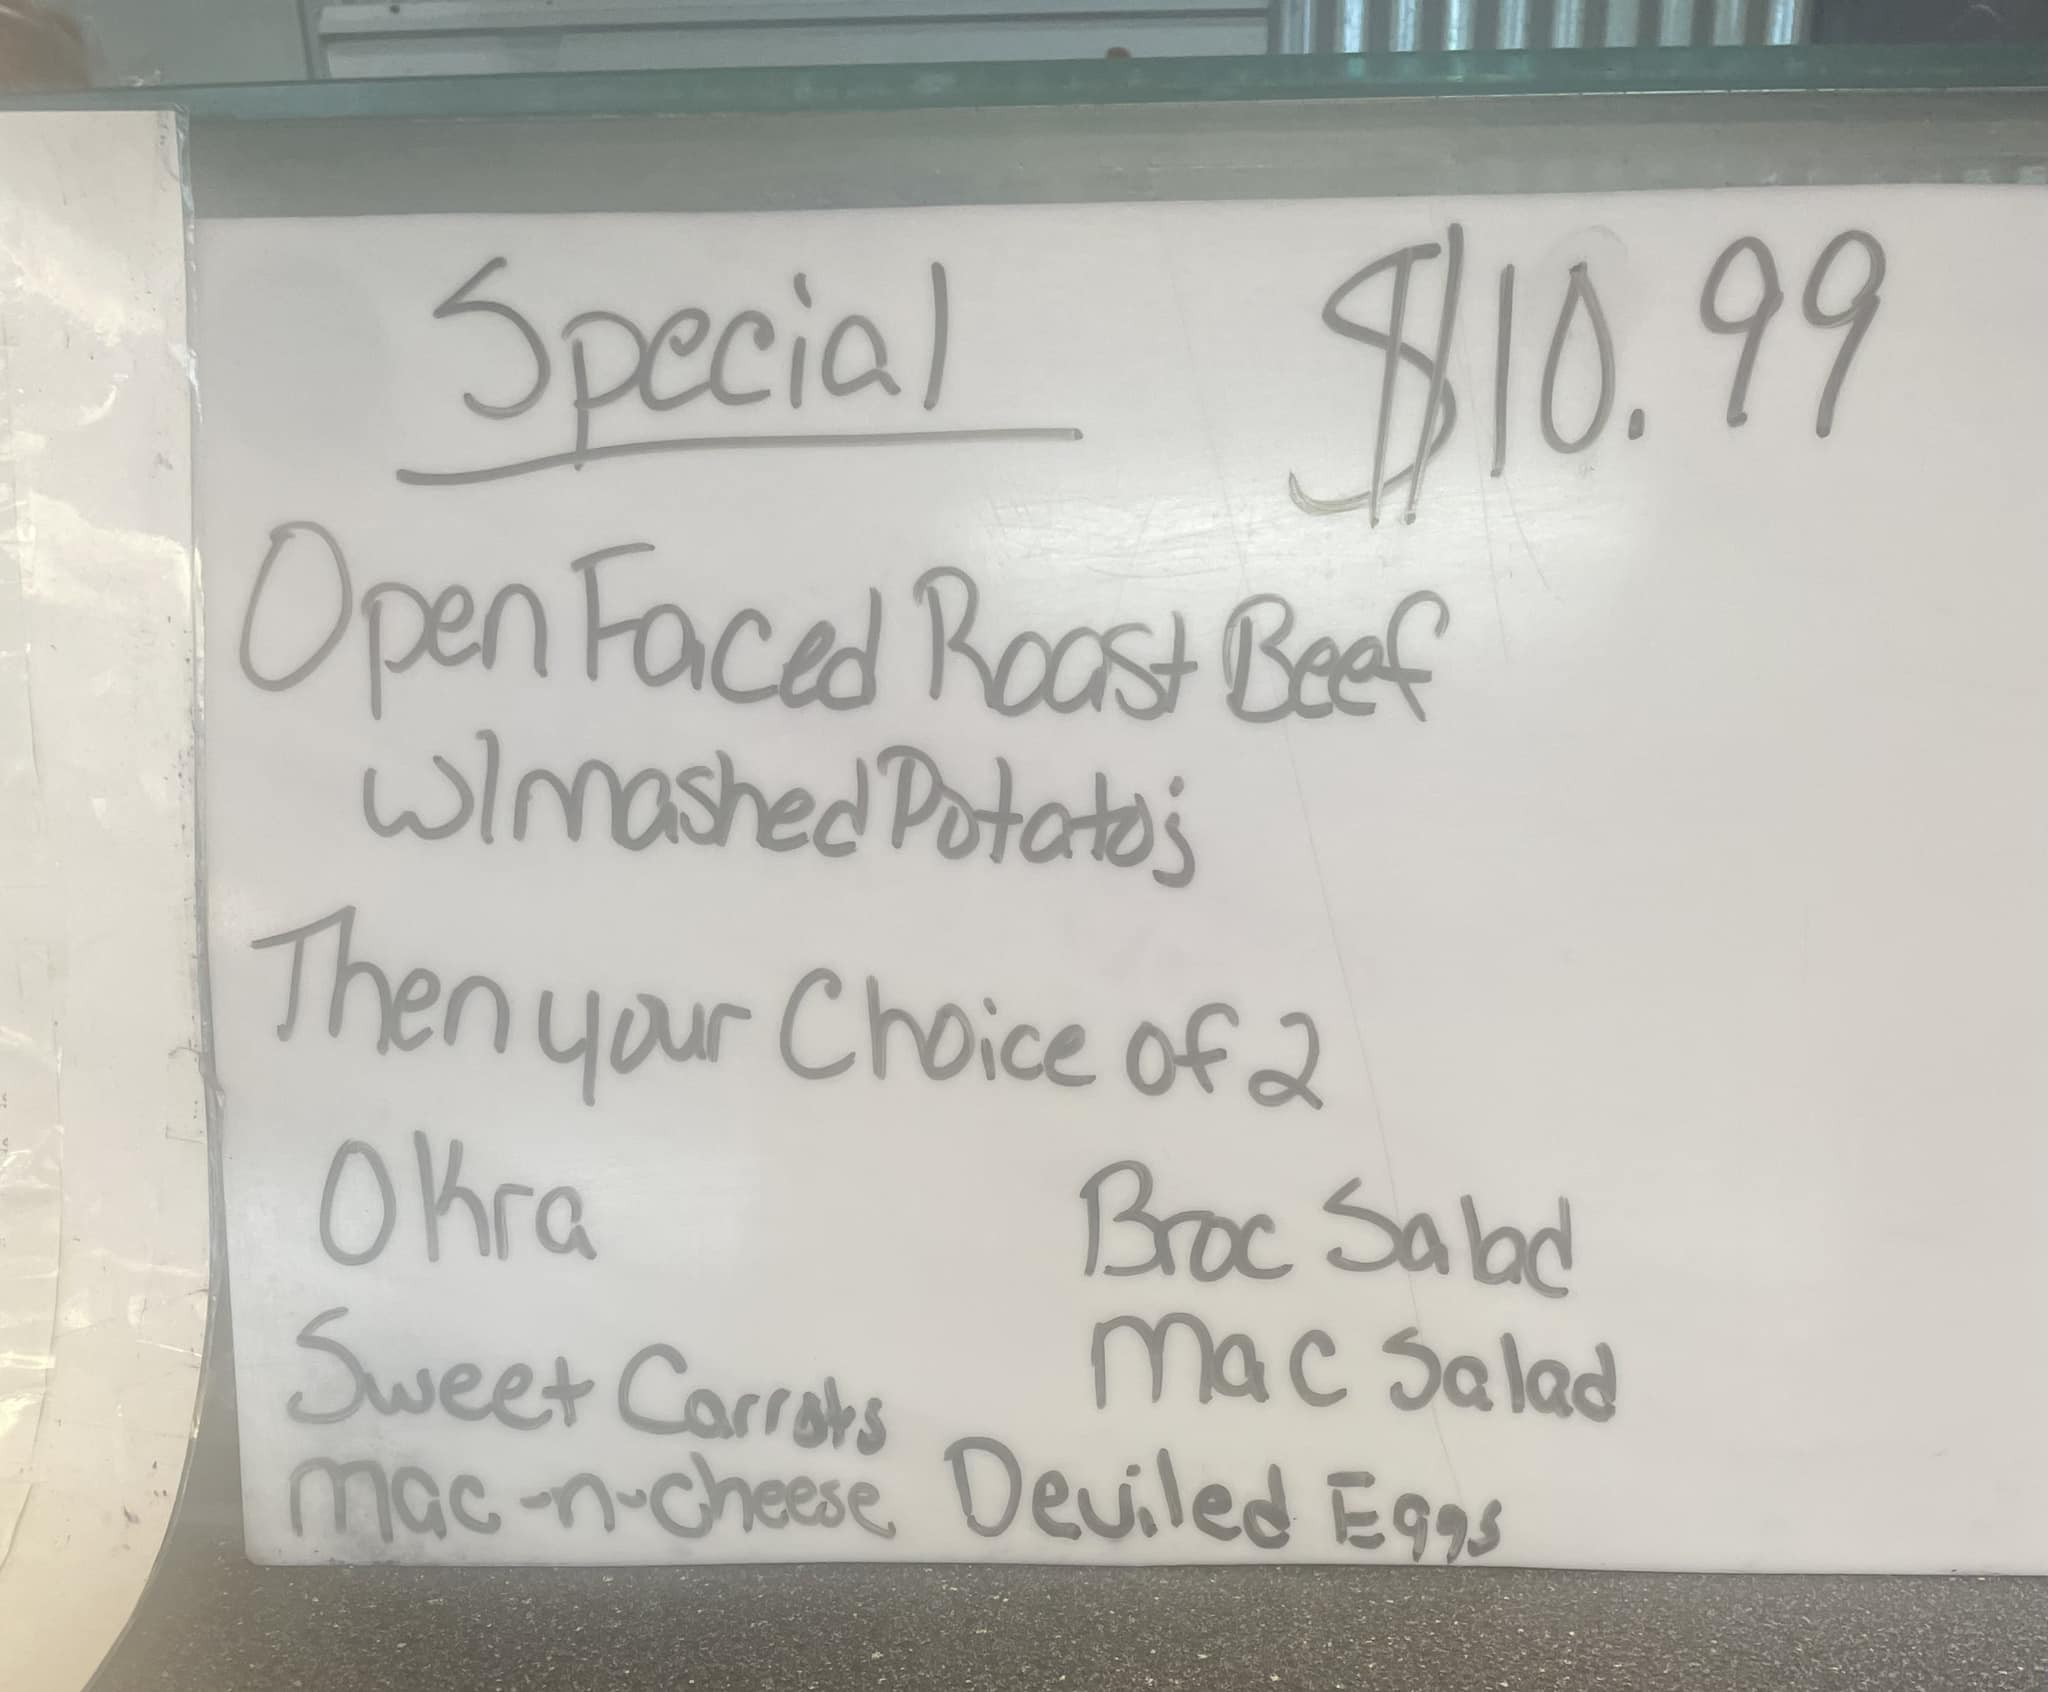 Special $10.99
Open Faced Roast Beef
w/mashed Potatos
Then your Choice of 2
Okra Broc Salad
Sweet Carrots Mac Salad
mac-n-cheese Deviled Eggs